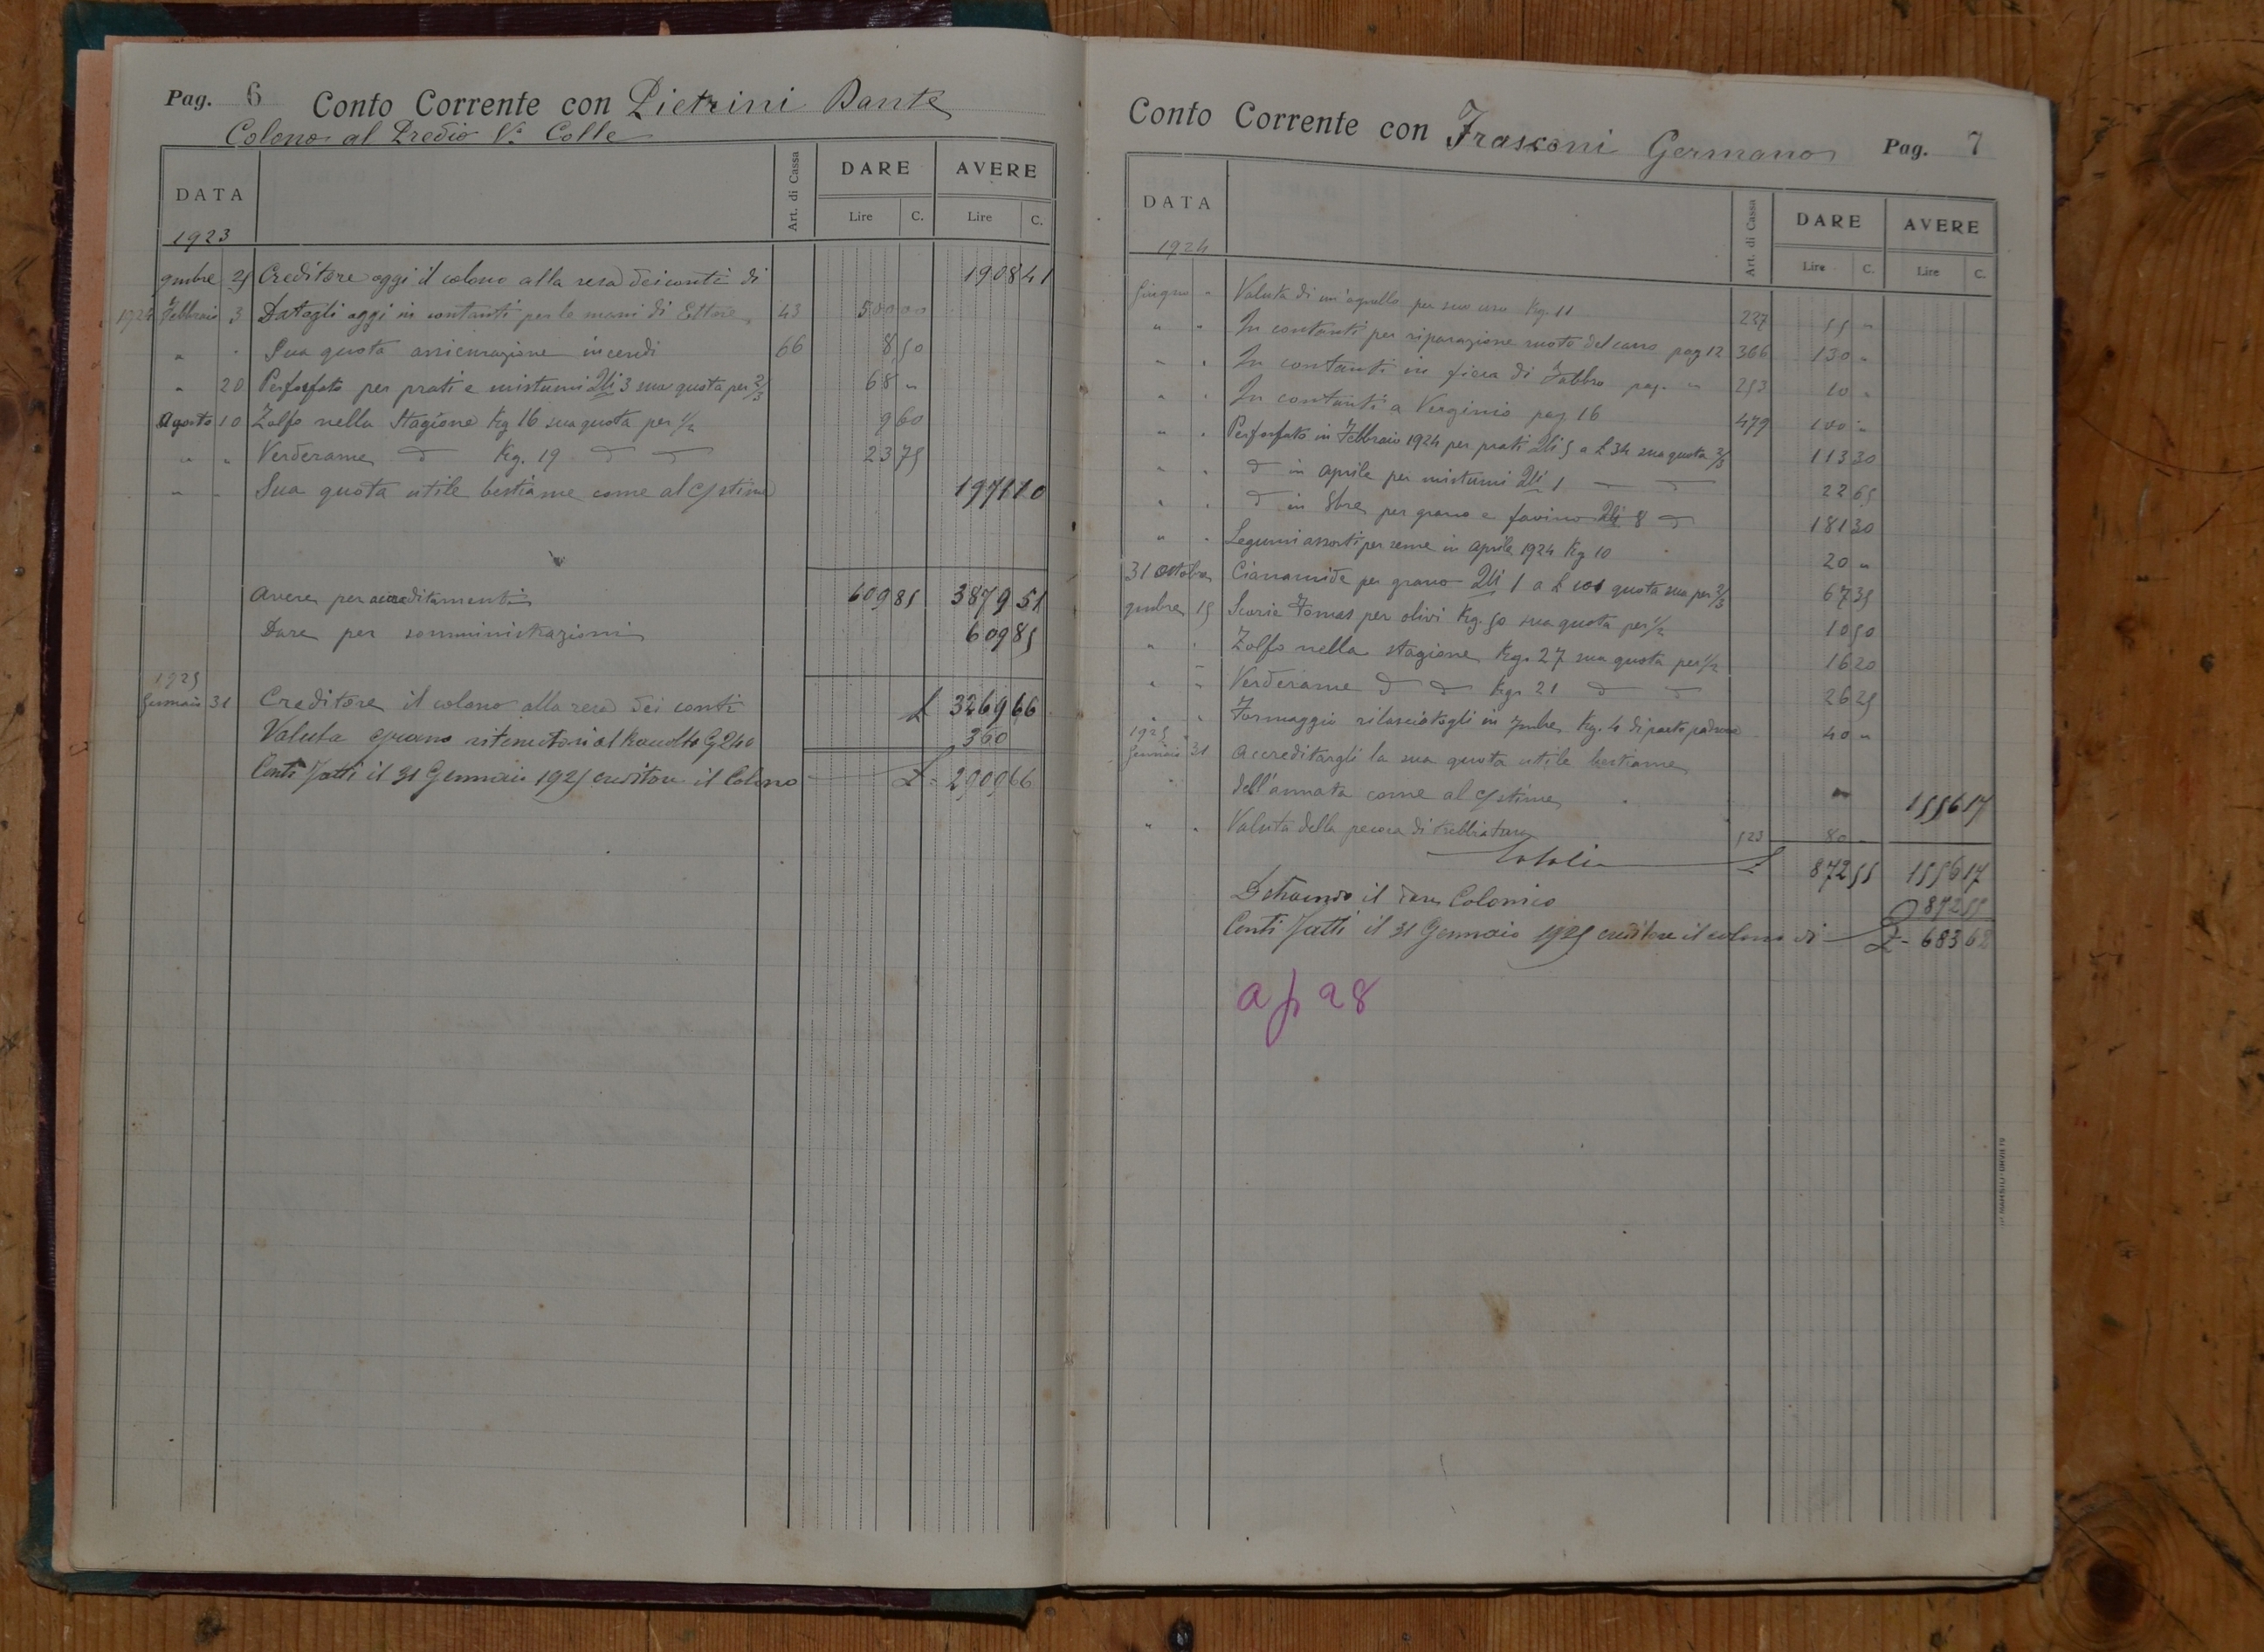 Pag. 6 Conto Corrente con Pietrini Dante
Colono al Predio V. Colle
DATA Art. di Cassa DARE AVERE
Lire C. Lire C.
1923
9mbre 25 Creditore oggi il colono alla resa dei conti di 1908 41
1924 Febbraio 3 Datogli oggi in contanti per le mani di Ettore 43 500 00
" " Sua quota assicurazione incendi 66 8 50
" 20 Perfosfato per prati e mistumi Qli 3 sua quota per 2/3 68 "
Agosto 10 Zolfo nella Stagione Kg 16 sua quota per 1/2 9 60
" " Verderame Kg. 19 23 75
" " Sua quota utile bestiame come al c/ stime 1971 10
Avere per accreditamenti 609 85 3879 51
Dare per somministrazioni 609 85
1925
Gennaio 31 Creditore il colono alla resa dei conti £ 3269 66
Valuta grano al 360
Conti fatti il 31 Gennaio 1925 creditore il Colono £. 2909 66
Conto Corrente con Frasconi Germano Pag. 7
DATA Art. di Cassa DARE AVERE
Lire C. Lire C.
1924
Giugno " Valuta di un'agnello per suo uso Kg. 11 227 55 "
" " In contanti per riparazione ruote del carro pag 12 366 130 "
" " In contanti in fiera di Fabbro pag. " 253 10 "
" " In contanti a Verginio pag 16 479 100 "
" " Perfosfato in Febbraio 1924 per prati Qli 5 a £ 34 sua quota 2/3 113 30
" " in aprile per mistumi Qli 1 22 65
" " in 8bre per grano e favino Qli 8 181 30
" " Legumi assorti per seme in aprile 1924 Kg 10 20 "
31 Ottobre Cianamide per grano Qli 1 a £ 101 quota sua per 2/3 67 35
9mbre 15 Scorie Tomas per olivi Kg. 50 sua quota per 1/2 10 50
" " Zolfo nella stagione Kg. 27 sua quota per 1/2 16 20
" " Verderame Kg. 21 26 25
" " Formaggio rilasciatogli in Kg. 4 di parte padrone 40 "
1925
Gennaio 31 Accreditargli la sua quota utile bestiame
" dell'annata come al c/ stime " 1556 17
" " Valuta della pecora di trebbiatura 523 80 "
Totali £ 872 55 1556 17
Detraendo il dare Colonico 872 55
Conti fatti il 31 Gennaio 1925 creditore il colono di £. 683 62
a p 28